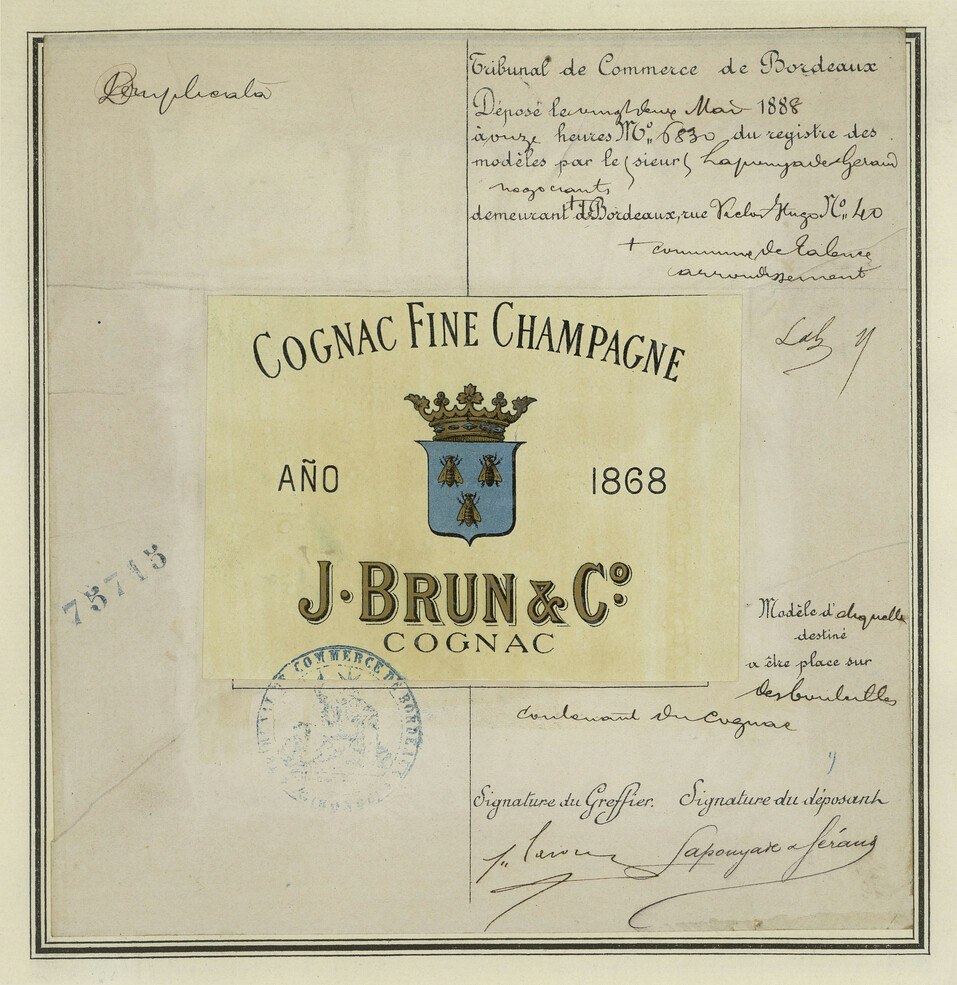 Duplicata
Tribunal de Commerce de Bordeaux
Déposé le vingt deux Mai 1888
à onze heures Nº 6830 du registre des
modèles par le sieur Lapouyade & Géraud
negociants
demeurant + à Bordeaux, rue Victor Hugo Nº 40
+ commune de Talence
arrondissement
COGNAC FINE CHAMPAGNE
AÑO 1868
J. BRUN & Cº
COGNAC
75715
Modèle d'etiquette
destiné
a être place sur
des bouteilles
contenant du Cognac
COMMERCE DE BORDEAUX
Signature du Greffier. Signature du déposant
Lapouyade & Géraud